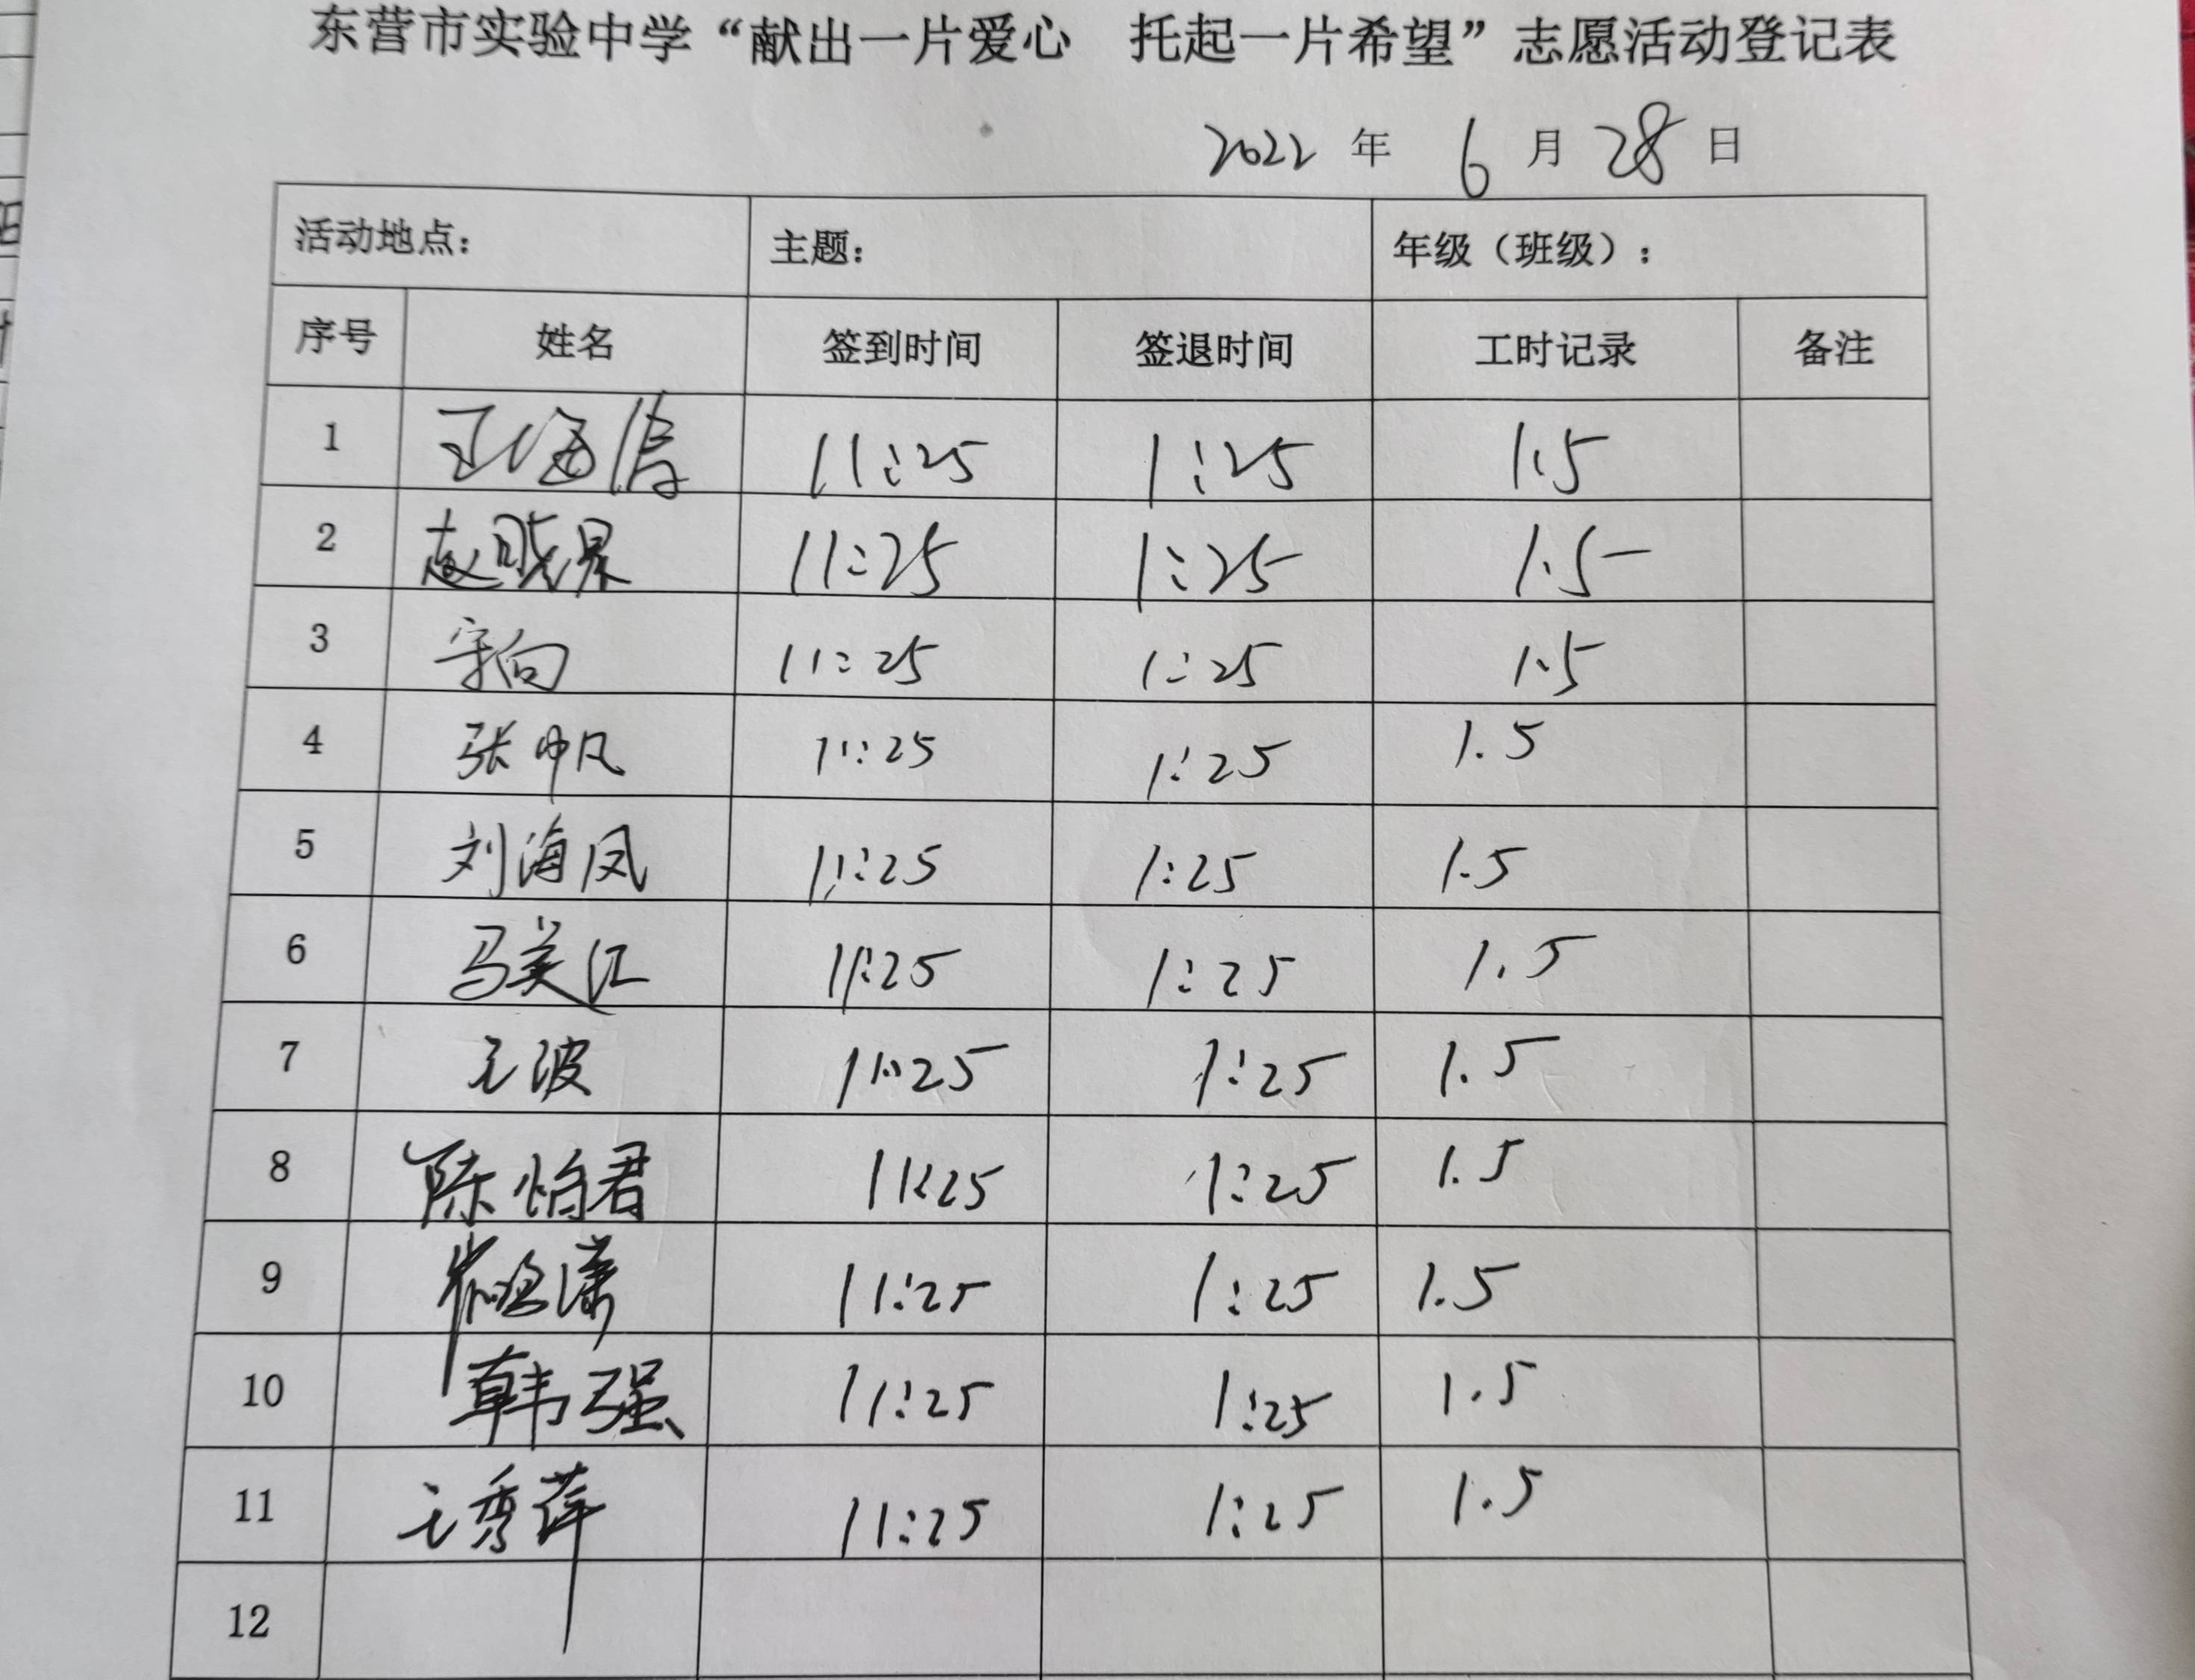 东营市实验中学“献出一片爱心 托起一片希望”志愿活动登记表
2022 年 6 月 28 日
活动地点： 主题： 年级（班级）：
序号 姓名 签到时间 签退时间 工时记录 备注
1 王海 11:25 1:25 1.5
2 赵晓 11:25 1:25 1.5
3 宋向 11:25 1:25 1.5
4 张帅凡 11:25 1:25 1.5
5 刘海凤 11:25 1:25 1.5
6 马美江 11:25 1:25 1.5
7 王波 11:25 1:25 1.5
8 陈怡君 11:25 1:25 1.5
9 崔 潇 11:25 1:25 1.5
10 韩强 11:25 1:25 1.5
11 王秀萍 11:25 1:25 1.5
12